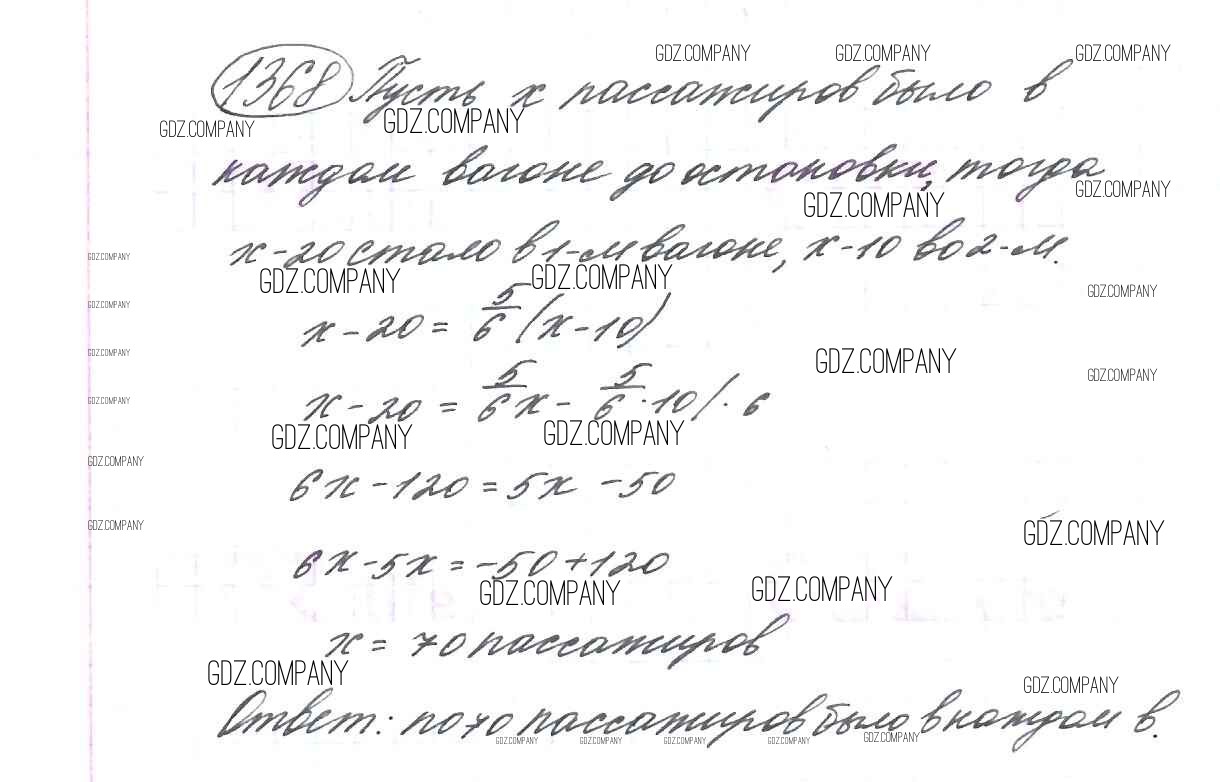 GDZ.COMPANY GDZ.COMPANY GDZ.COMPANY
1368 Пусть x пассажиров было в
GDZ.COMPANY GDZ.COMPANY
каждом вагоне до остановки, тогда
GDZ.COMPANY GDZ.COMPANY
x-20 стало в 1-м вагоне, x-10 во 2-м.
GDZ.COMPANY GDZ.COMPANY GDZ.COMPANY GDZ.COMPANY
x-20 = 5/6 (x-10)
GDZ.COMPANY GDZ.COMPANY GDZ.COMPANY GDZ.COMPANY
x-20 = 5/6 x - 5/6 · 10 / · 6
GDZ.COMPANY GDZ.COMPANY GDZ.COMPANY GDZ.COMPANY
6x-120=5x-50
GDZ.COMPANY GDZ.COMPANY
6x-5x=-50+120
GDZ.COMPANY GDZ.COMPANY
x = 70 пассажиров
GDZ.COMPANY GDZ.COMPANY
Ответ: по 70 пассажиров было в каждом в.
GDZ.COMPANY GDZ.COMPANY GDZ.COMPANY GDZ.COMPANY GDZ.COMPANY